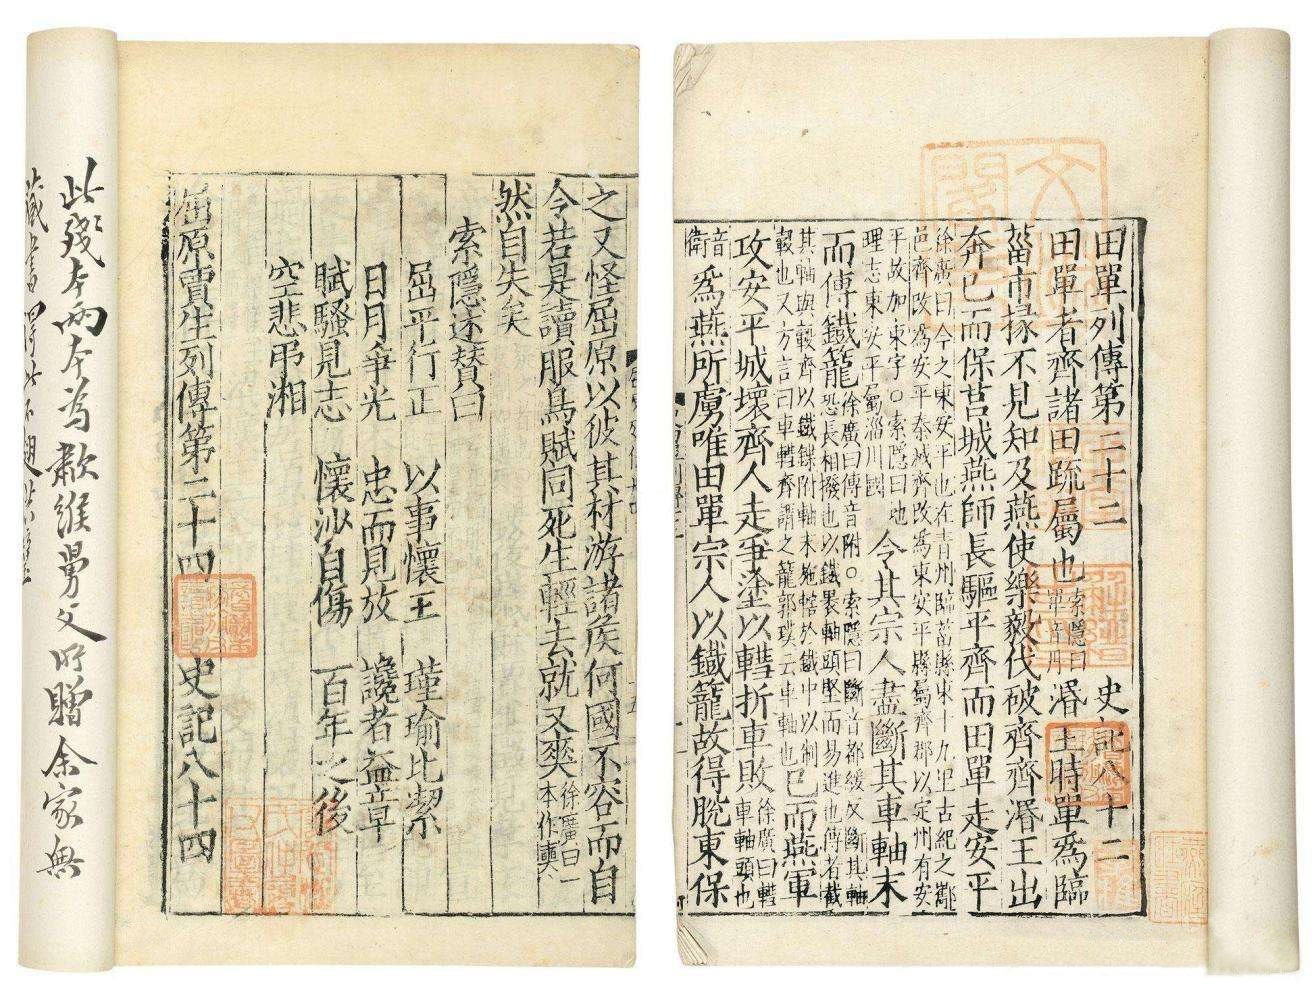 田單列傳第二十二 史記八十二
田單者齊諸田疏屬也索隱曰單音丹湣王時單為臨
菑市掾不見知及燕使樂毅伐破齊齊湣王出
奔已而保莒城燕師長驅平齊而田單走安平
徐廣曰今之東安平也在青州臨菑縣東十九里古紀之酅
邑齊改為安平秦滅齊改為東安平縣屬齊郡以定州有安
平故加東字○索隱曰地理志東安平屬淄川國令其宗人盡斷其車軸末
而傅鐵籠徐廣曰傅音附○索隱曰斷音都緩反斷其軸
恐長相撥也以鐵裹軸頭堅而易進也傅者截
其軸與轂齊以鐵鍱附軸末施轄於鐵中以制
轂也又方言曰車轊齊謂之籠郭璞云車軸也已而燕軍
攻安平城壞齊人走爭塗以轊折車敗徐廣曰轊車軸頭也
音衛為燕所虜唯田單宗人以鐵籠故得脫東保
之又怪屈原以彼其材游諸侯何國不容而自
令若是讀服鳥賦同死生輕去就又爽徐廣曰一本作奭
然自失矣
索隱述贊曰
屈平行正 以事懷王 瑾瑜比潔
日月爭光 忠而見放 讒者益章
賦騷見志 懷沙自傷 百年之後
空悲弔湘
屈原賈生列傳第二十四 史記八十四
此殘本兩本為歙維昜父所贈余家無
藏書得此不